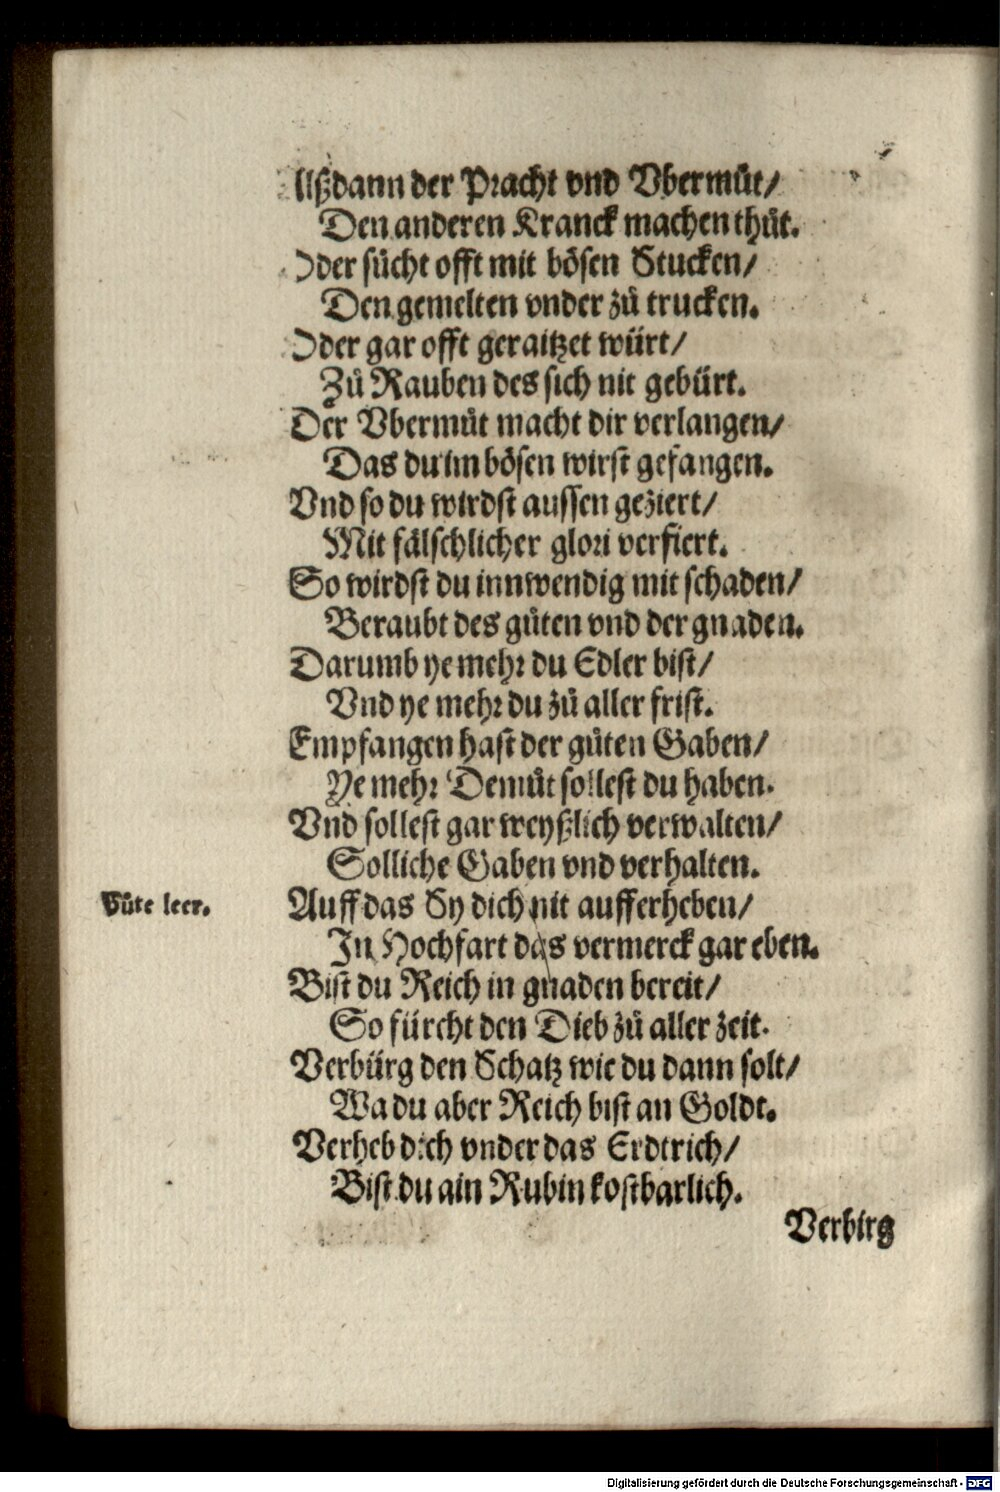 Alßdann der Pracht vnd Vbermůt/
Den anderen Kranck machen thůt.
Oder sůcht offt mit bösen Stucken/
Den gemelten vnder zů trucken.
Oder gar offt geraitzet würt/
Zů Rauben des sich nit gebürt.
Der Vbermůt macht dir verlangen/
Das du im bösen wirst gefangen.
Vnd so du wirdst aussen geziert/
Mit fälschlicher glori verfiert.
So wirdst du innwendig mit schaden/
Beraubt des gůten vnd der gnaden.
Darumb ye mehr du Edler bist/
Vnd ye mehr du zů aller frist.
Empfangen hast der gůten Gaben/
Ye mehr Demůt sollest du haben.
Vnd sollest gar weyßlich verwalten/
Solliche Gaben vnd verhalten.
Gůte leer.
Auff das Sy dich nit aufferheben/
In Hochfart das vermerck gar eben.
Bist du Reich in gnaden bereit/
So fürcht den Dieb zů aller zeit.
Verbürg den Schatz wie du dann solt/
Wa du aber Reich bist an Goldt.
Verheb dich vnder das Erdtrich/
Bist du ain Rubin kostbarlich.
Verbirg
Digitalisierung gefördert durch die Deutsche Forschungsgemeinschaft - DFG